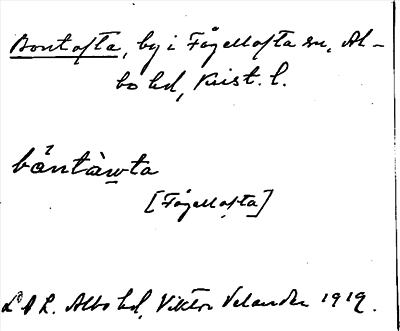 Bontofta, by i Fågeltofta sn, Al-
bo hd, Krist. l.
bɷ́ntàw̲ta
[Fågeltofta]
L A L. Albo hd, Viktor Velander 1919.